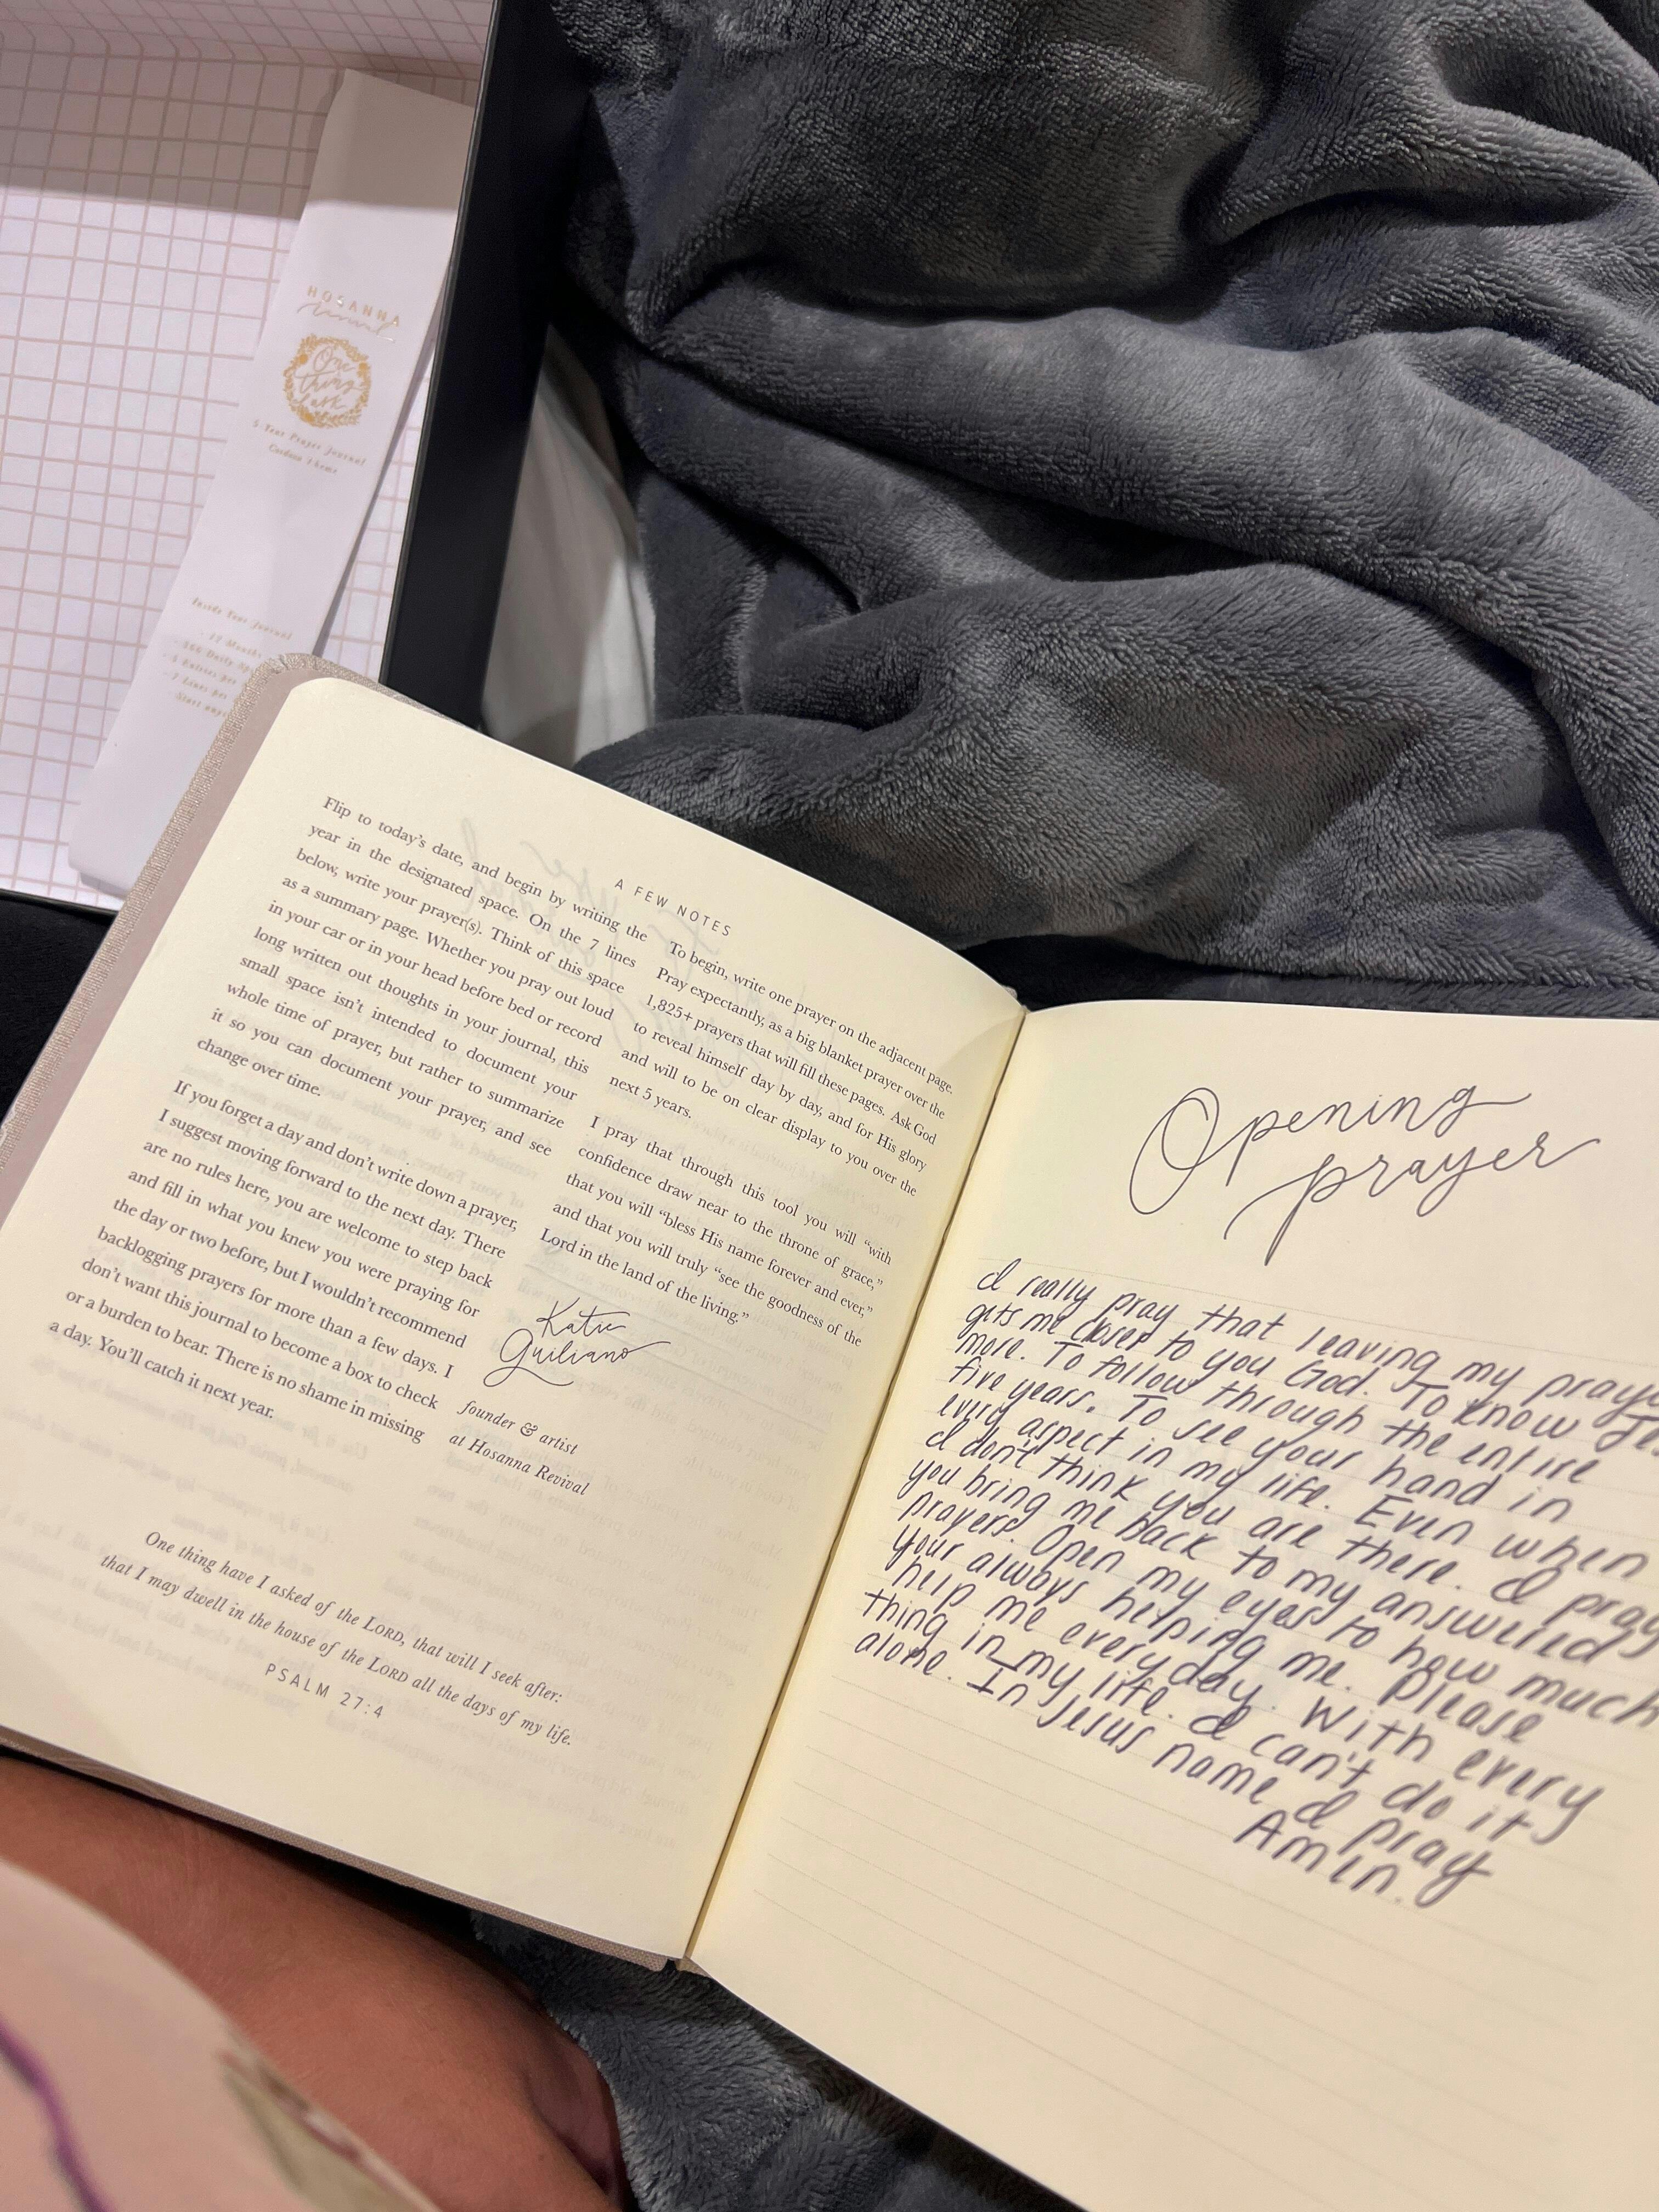 HOSANNA
Revival
One
thing
I ask
5 Year Prayer Journal
Inside Your Journal
- 12 Months
A FEW NOTES
Flip to today's date, and begin by writing the
year in the designated space. On the 7 lines
below, write your prayer(s). Think of this space
as a summary page. Whether you pray out loud
in your car or in your head before bed or record
long written out thoughts in your journal, this
small space isn't intended to document your
whole time of prayer, but rather to summarize
it so you can document your prayer, and see
change over time.
If you forget a day and don't write down a prayer,
I suggest moving forward to the next day. There
are no rules here, you are welcome to step back
and fill in what you knew you were praying for
the day or two before, but I wouldn't recommend
backlogging prayers for more than a few days. I
don't want this journal to become a box to check
or a burden to bear. There is no shame in missing
a day. You'll catch it next year.
To begin, write one prayer on the adjacent page.
Pray expectantly, as a big blanket prayer over the
1,825+ prayers that will fill these pages. Ask God
to reveal himself day by day, and for His glory
and will to be on clear display to you over the
next 5 years.
I pray that through this tool you will "with
confidence draw near to the throne of grace,"
that you will "bless His name forever and ever,"
and that you will truly "see the goodness of the
Lord in the land of the living."
Katie
Guiliano
founder & artist
at Hosanna Revival
One thing have I asked of the LORD, that will I seek after:
that I may dwell in the house of the LORD all the days of my life.
PSALM 27:4
Opening
prayer
I really pray that leaving my
gets me closer to you God. To know
more. To follow through the entire
five years. To see your hand in
every aspect in my life. Even when
I don't think you are there. I pray
you bring me back to my answered
prayers. Open my eyes to how much
your always helping me. Please
help me everyday. With every
thing in my life. I can't do it
alone. In Jesus name I pray
Amen.